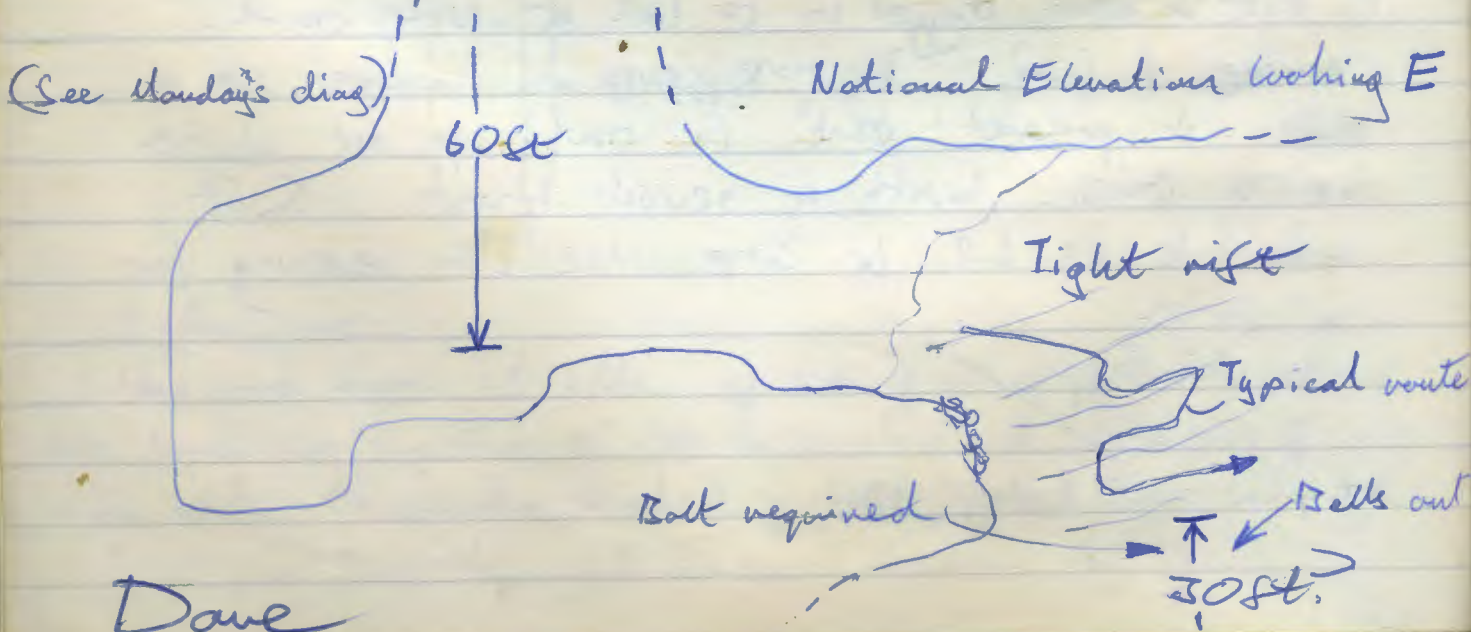 (See Monday's diag)
Notional Elevation looking E
60ft
Tight rift
Typical route
Bolt required
Bells out
30ft?
Dave